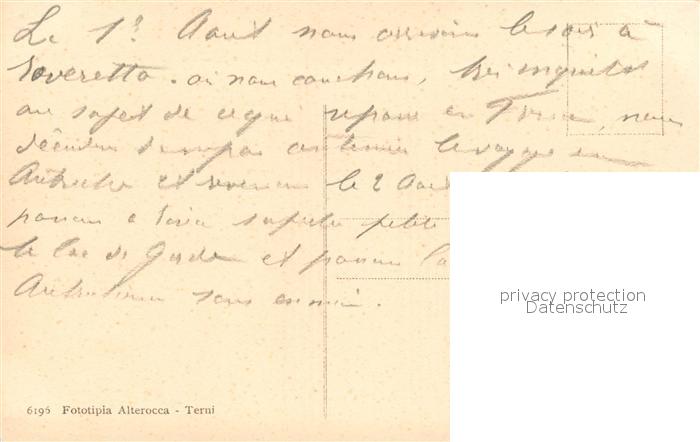 Le 1er Août nous arrivons le soir à
Roveretto. où nous couchons, très inquiets
au sujet de ce qui se passe en France, nous
décidons de ne pas continuer le voyage en
Autriche et revenons le 2 Août
passons à Riva superbe petite
le lac de Garde et passons la
Autrichienne sans ennui.
6196 Fototipia Alterocca - Terni
privacy protection
Datenschutz